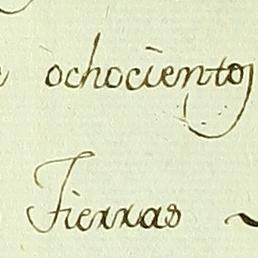 ochocientos
Tierras